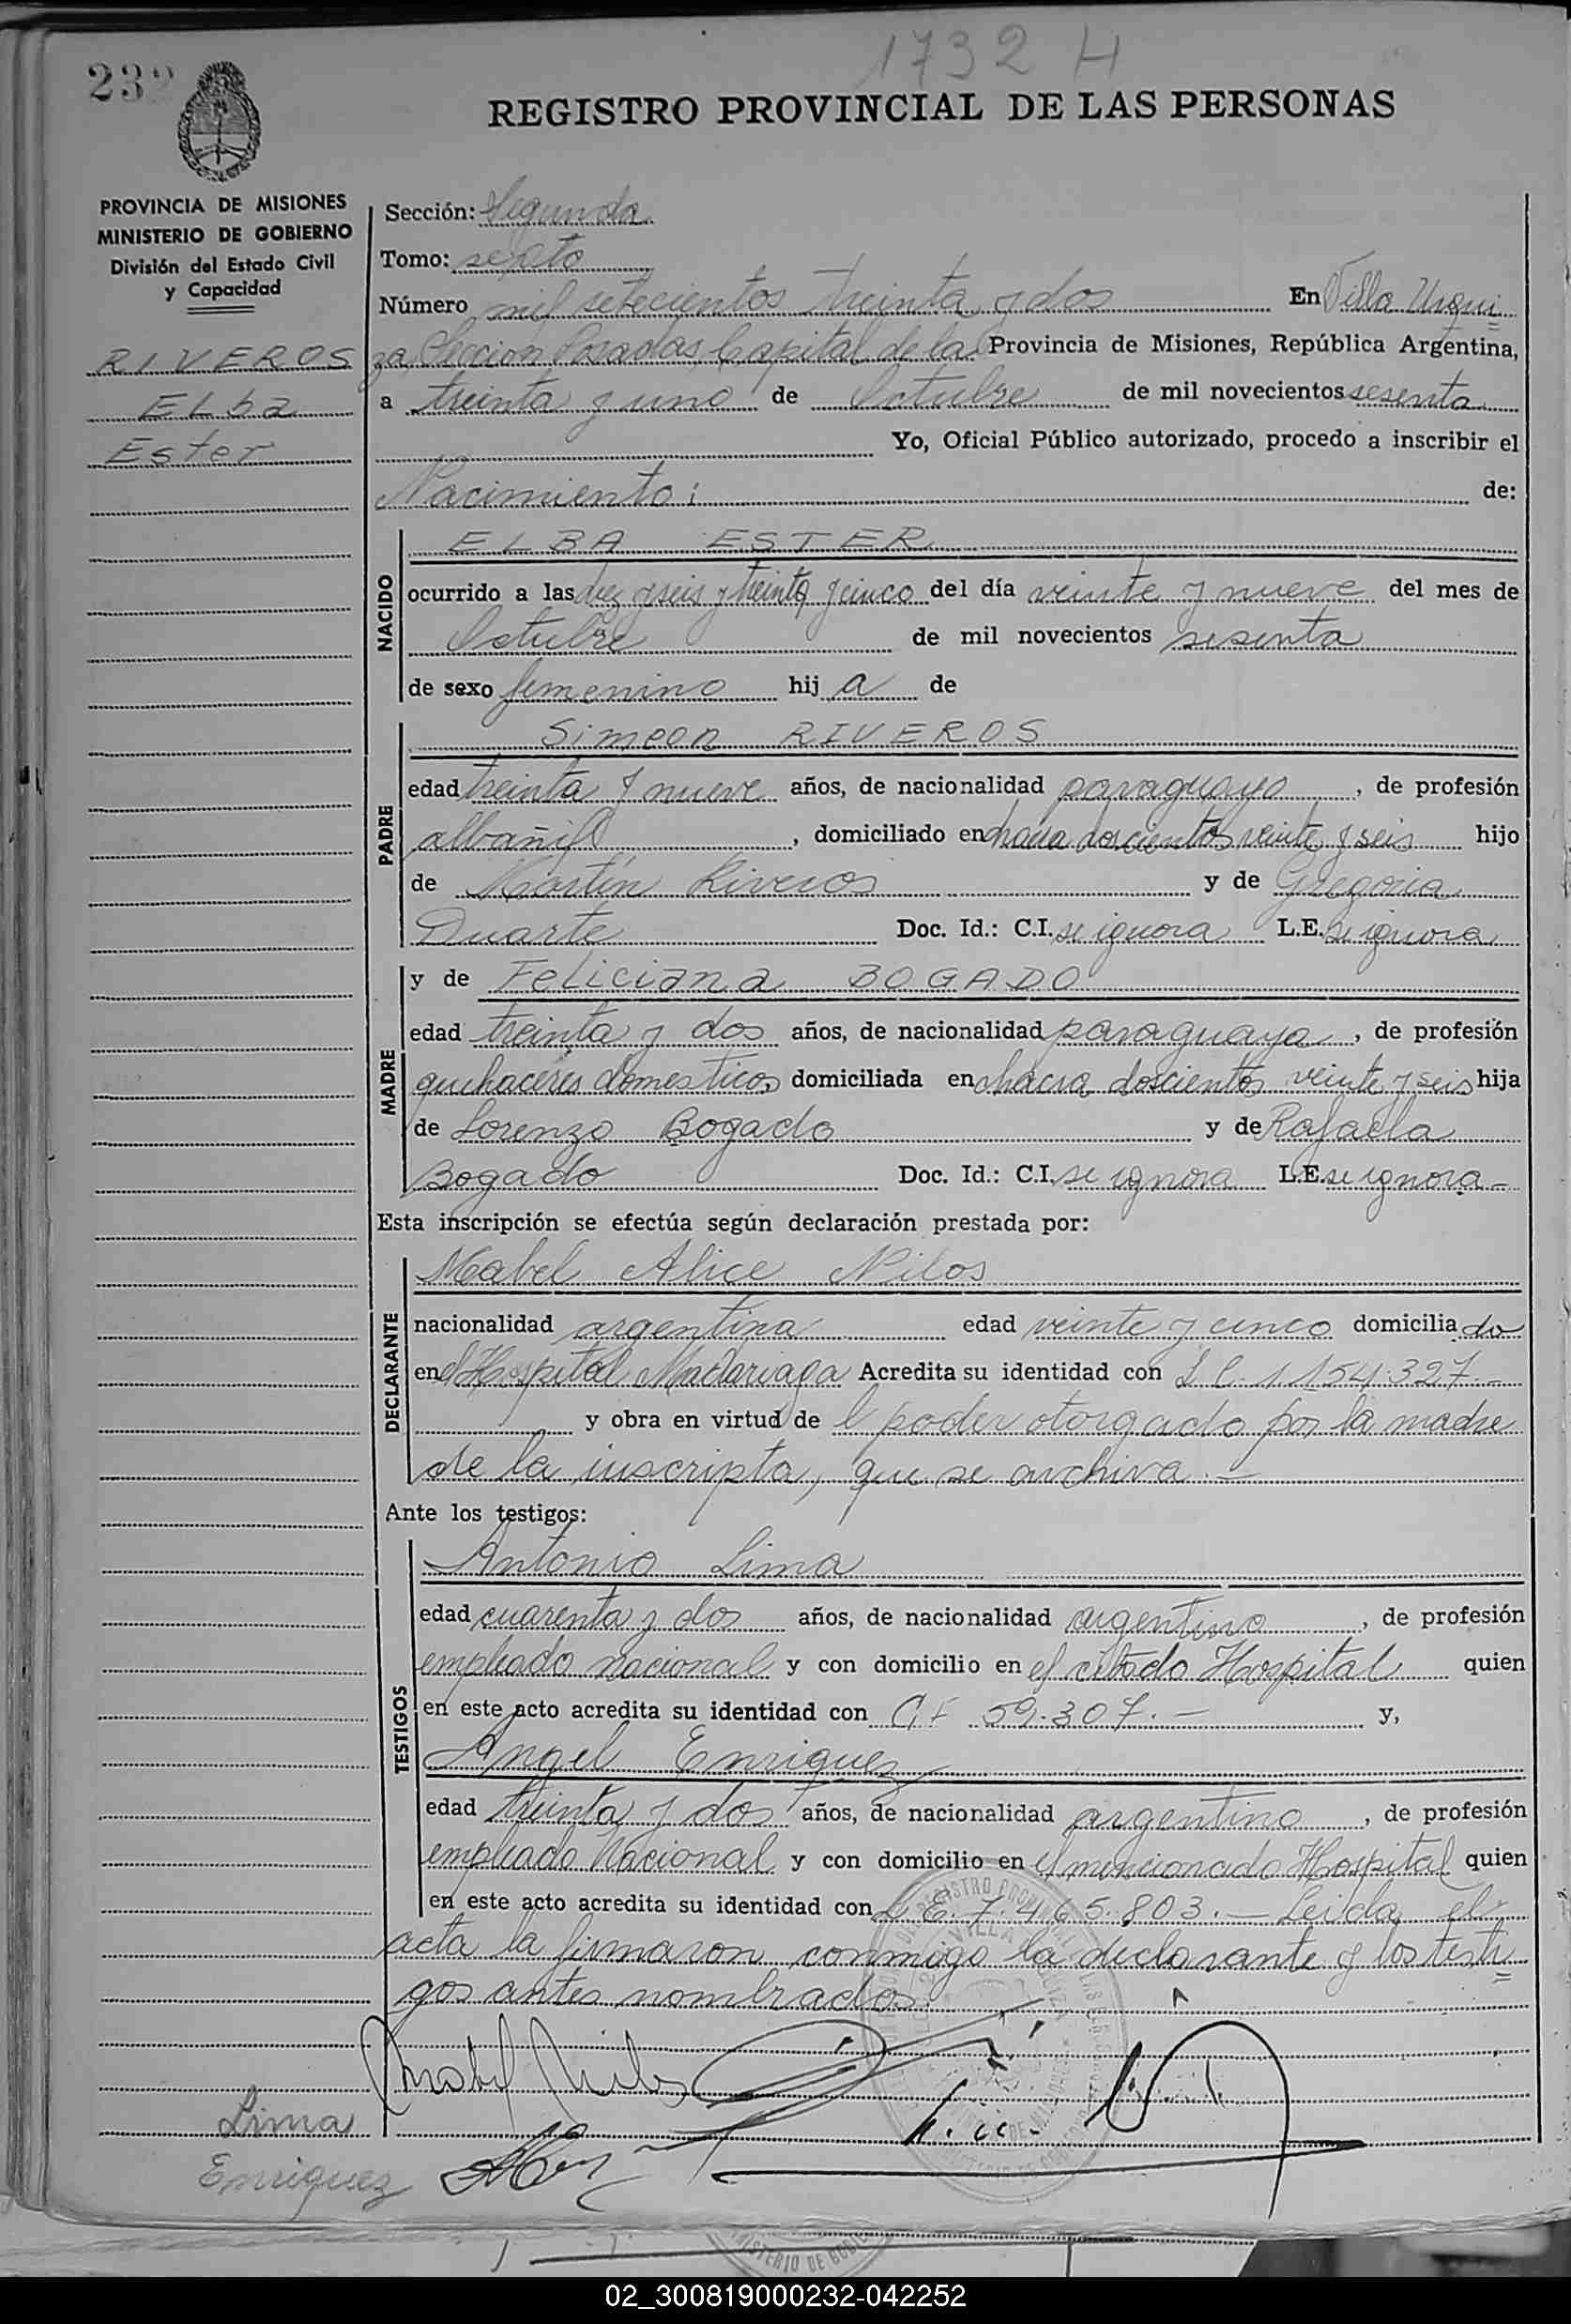 1732 H
232
REGISTRO PROVINCIAL DE LAS PERSONAS
PROVINCIA DE MISIONES
MINISTERIO DE GOBIERNO
División del Estado Civil
y Capacidad
RIVEROS
ELba
Ester
Sección: Segunda
Tomo: sexto
Número mil setecientos treinta y dos En Villa Urqui
za, Sección Posadas, Capital de la Provincia de Misiones, República Argentina,
a treinta y uno de Octubre de mil novecientos sesenta
Yo, Oficial Público autorizado, procedo a inscribir el
Nacimiento: de:
NACIDO
ELBA ESTER
ocurrido a las diez y seis y treinta y cinco del día veinte y nueve del mes de
Octubre de mil novecientos sesenta
de sexo femenino hij a de
PADRE
Simeon RIVEROS
edad treinta y nueve años, de nacionalidad paraguayo, de profesión
albañil, domiciliado en chacra doscientos veinte y seis hijo
de Martín Riveros y de Gregoria
Duarte Doc. Id.: C.I. se ignora L.E. se ignora
MADRE
y de Feliciana BOGADO
edad treinta y dos años, de nacionalidad paraguaya, de profesión
quehaceres domesticos, domiciliada en chacra doscientos veinte y seis hija
de Lorenzo Bogado y de Rafaela
Bogado Doc. Id.: C.I. se ignora L.E. se ignora-
Esta inscripción se efectúa según declaración prestada por:
DECLARANTE
Mabel Alice Nilos
nacionalidad argentina edad veinte y cinco domicilia do
en el Hospital Madariaga Acredita su identidad con L C. 1.154.327.-
y obra en virtud de l poder otorgado por la madre
de la inscripta, que se archiva.-
Ante los testigos:
TESTIGOS
Antonio Lima
edad cuarenta y dos años, de nacionalidad argentino, de profesión
empleado nacional y con domicilio en el citado Hospital quien
en este acto acredita su identidad con 59.307.- y,
Angel Enriquez
edad treinta y dos años, de nacionalidad argentino, de profesión
empleado Nacional y con domicilio en el mencionado Hospital quien
en este acto acredita su identidad con L E. 7.465.803.- Leida el
acta la firmaron conmigo la declarante y los testi
gos antes nombrados.
Mabel Nilos
Lima
Enriquez
02_300819000232-042252